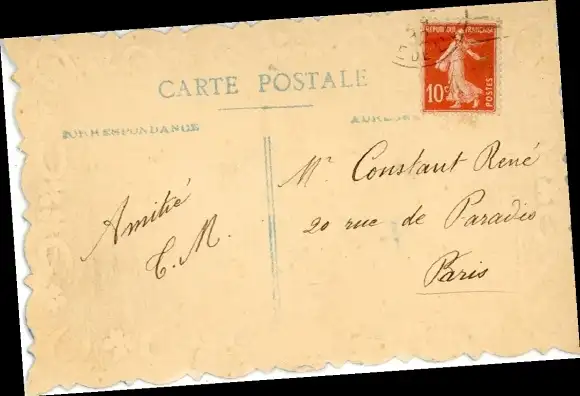 REPUBLIQUE FRANÇAISE
10c
POSTES
CARTE POSTALE
CORRESPONDANCE
Amitié
C. M.
Mr Constant René
20 rue de Paradis
Paris